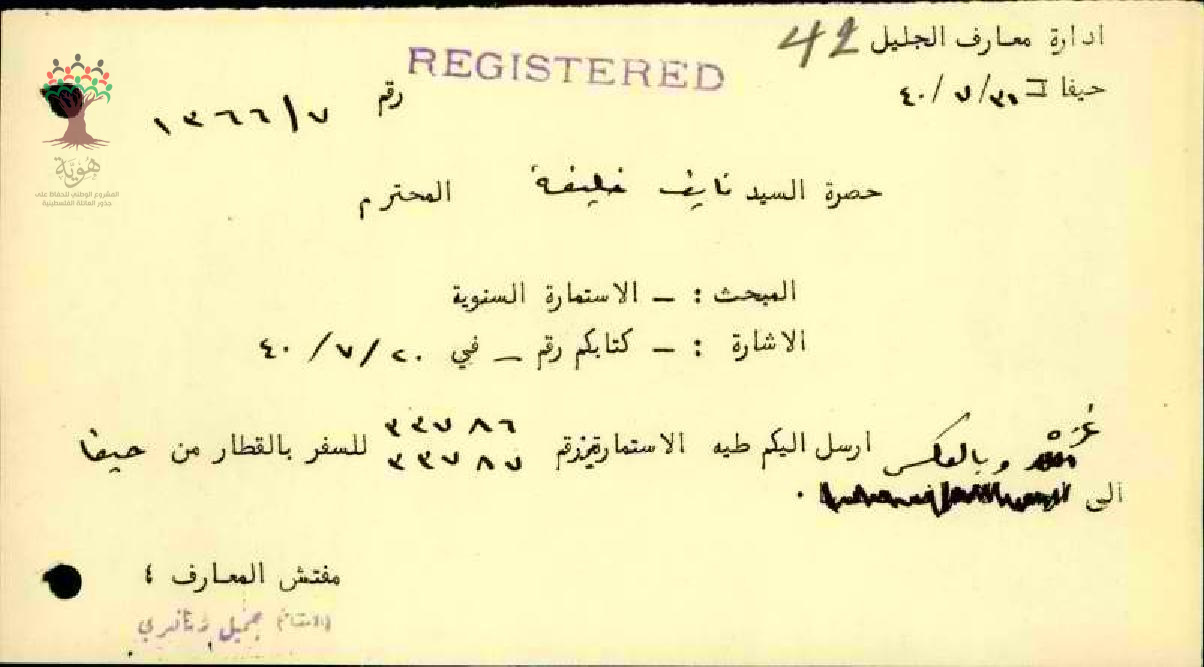 ادارة معارف الجليل
42
REGISTERED
حيفا في ٣١/٧/٤٠
رقم ١٣٦٦/٧
حصرة السيد نايف خليفة المحترم
المبحث : ــ الاستمارة السنوية
الاشارة : ــ كتابكم رقم ــ في ٢٠/٧/٤٠
ارسل اليكم طيه الاستمارتين رقم ٣٣٧٨٦ ٣٣٧٨٧ للسفر بالقطار من حيفا
الى غزة وبالعكس .
مفتش المعارف ؛
(الاستاذ) جميل زنانيري
هُوِيَّة
المشروع الوطني للحفاظ على
جذور العائلة الفلسطينية